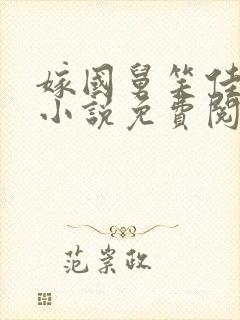 嫁國舅笑佳
小說免費閱
范崇政